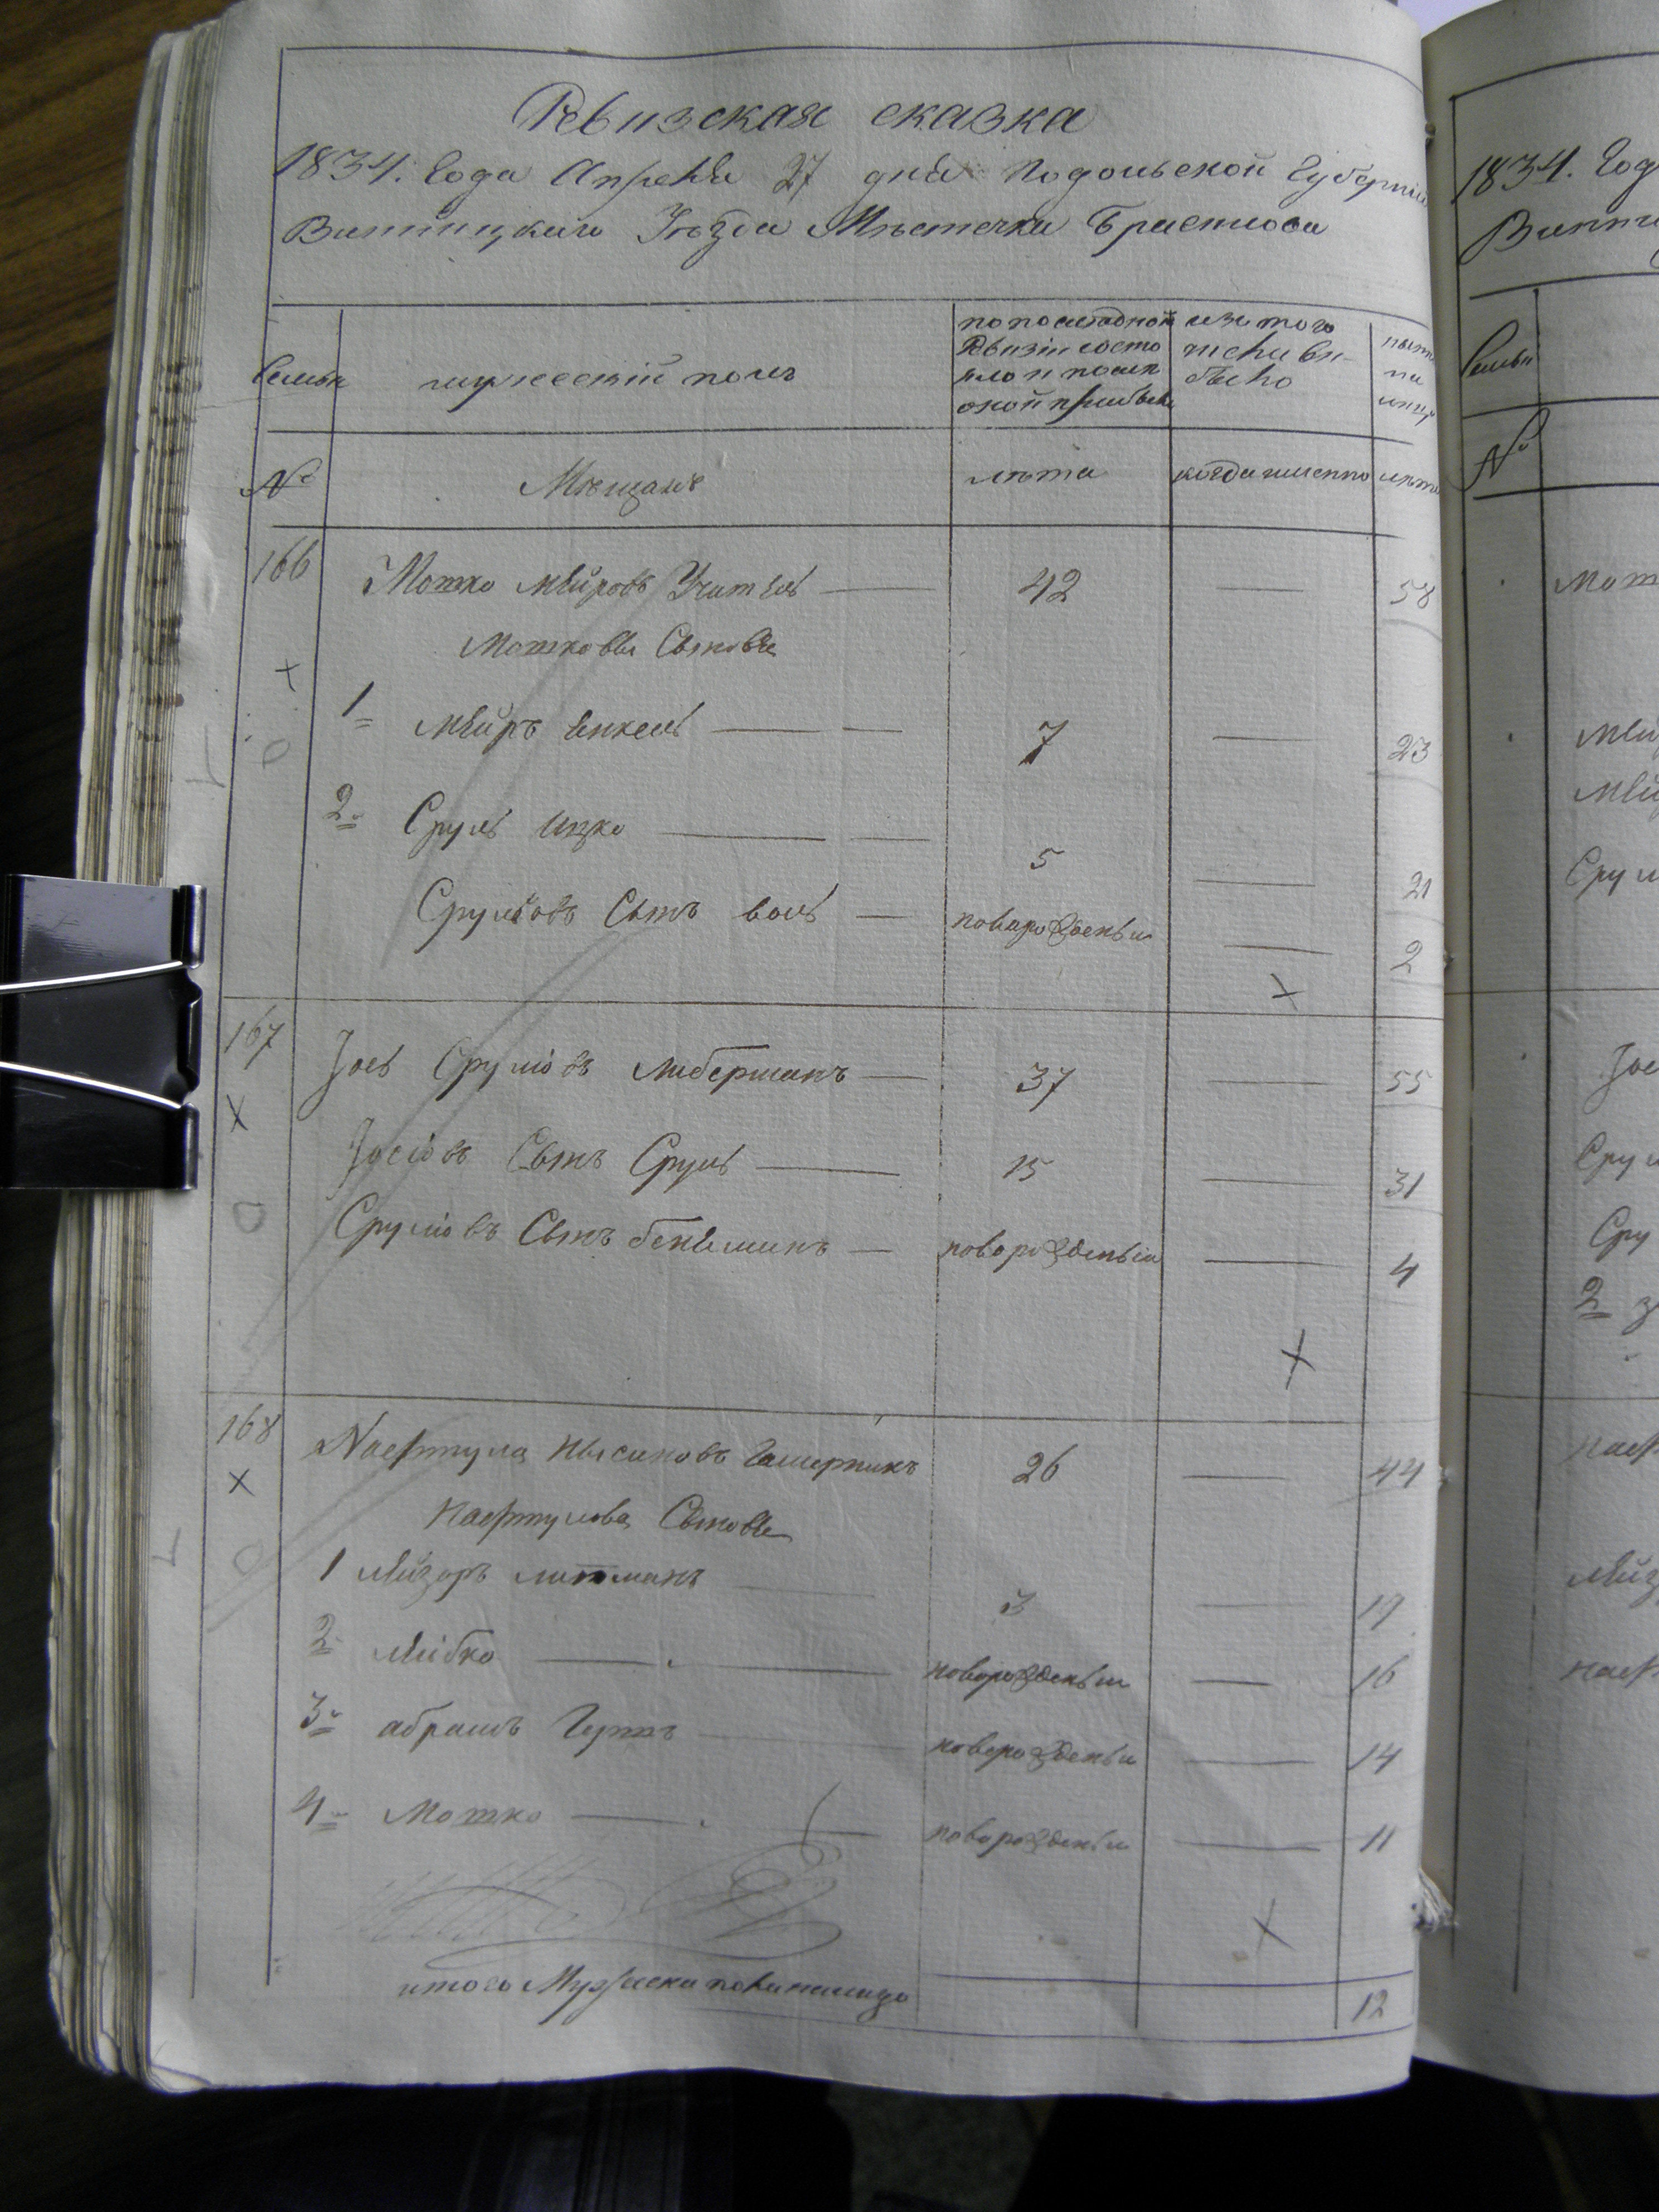 Ревизская сказка
1834. Года Апреля 27 дня Подольской Губерніи
Винницкого Уезда Местечка Браилова
Семьи
мужескій полъ
по последной
Ревизіи состо
яло и после
оной прибыло
изъ того
числа вы-
было
ныне
на
лицо
№
Мещане
лета
когда именно
лета
166
Мошко Мейровъ Учитель 42 58
Мошковы Сыновья
1 Мейръ Янкель 7 23
2. Сруль Ицко 5 21
Срулёвъ Сынъ воль новорожденый 2
167
Іось Срулiовъ Либерманъ 37 55
Іосiовъ Сынъ Сруль 15 31
Срулiовъ Сынъ бенеминъ новорожденый 4
168
Нафтула Нысиновъ 26 44
Нафтулова Сыновья
1 Лейзоръ литманъ 3 19
2 Лейбко новорожденый 16
3 абрамъ Гершъ новорожденый 14
4 Мошко новорожденый 11
итого Мужеска пола налицо
12
1834. Год
Винни
Семьи
№
Мош
Мей
Мей
Срул
Іос
Срул
Сру
2
Наф
Лейз
Наф